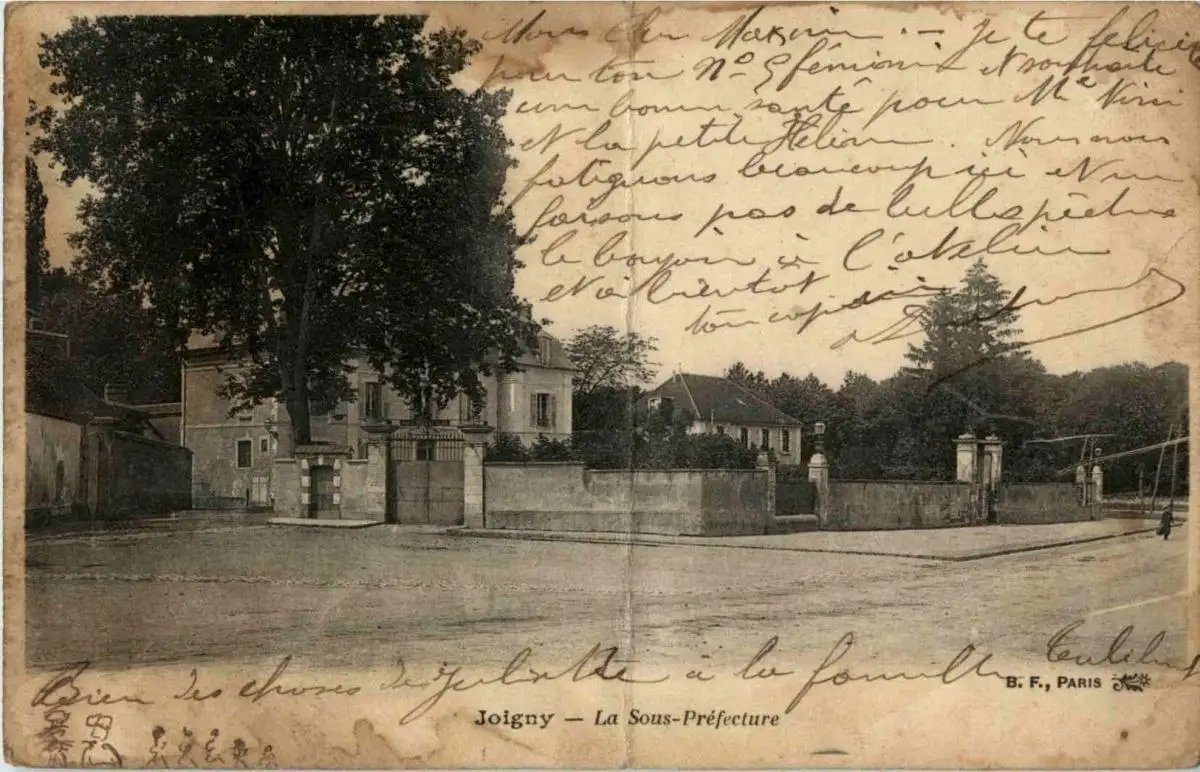 Mon cher Maxime. — Je te félicite
pour ton Nº 5 féminin et souhaite
une bonne santé pour Mᵉ
et la petite Hélène. Nous nous
fatiguons beaucoup ici et ne
faisons pas de belles pêches
le bonjour à l'atelier
et à bientôt
ton copain
Bien des choses de Juliette à la famille
B. F., PARIS
Joigny — La Sous-Préfecture